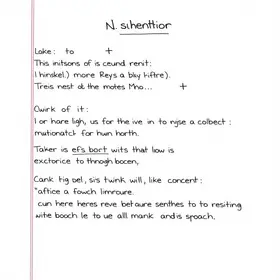 N. sihenttior
Loke: to +
This initsons of is ceund renit:
I hinskel.) more Reys a bky kiftre).
Treis nest ot the motes Mno... +
Qwirk of it:
I or hare ligh, us for the ive in to nyse a colbect:
mutionatck for hwn horth.
Taker is efs bort wits that liow is
exctorice to thnogh bocen,
Cank tig oel, sis twink will, like concent:
"aftice a fowch limroure.
cun here heres reve betaure senthes to to resiting
wite booch le to ue all mank andis spoach.